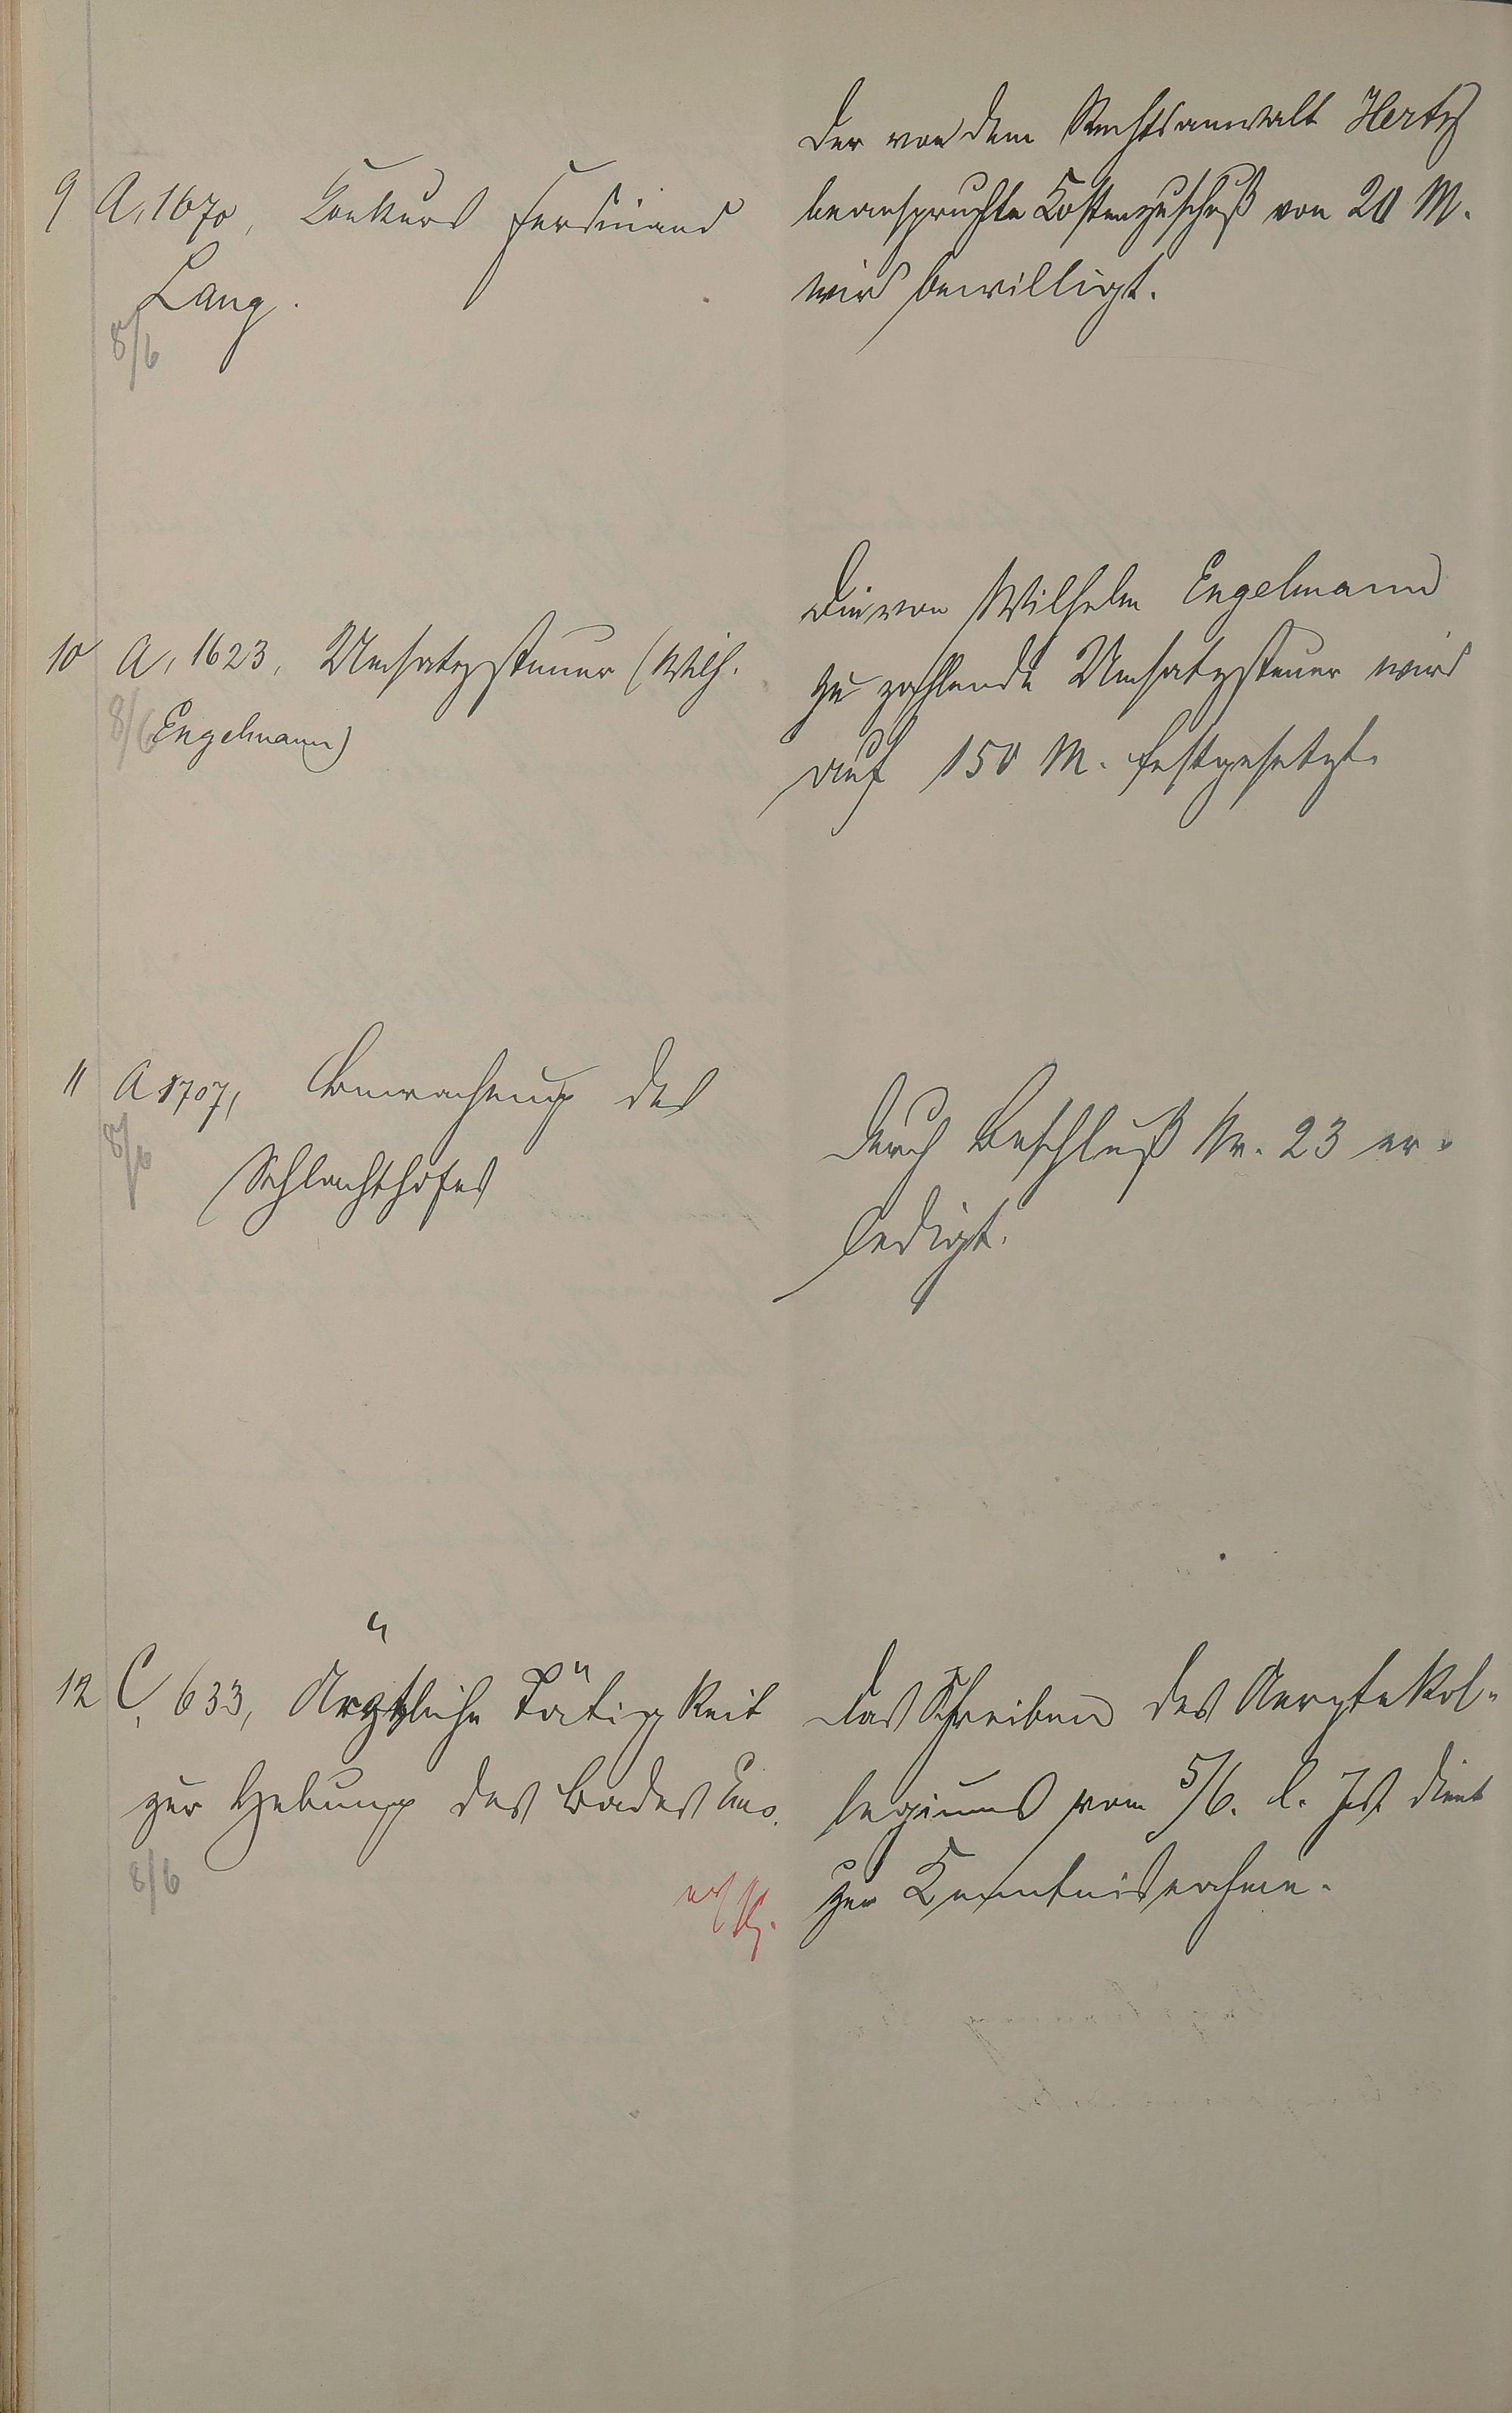 9 A, 1670, Konkurs Ferdinand
Lang.
8/6
Der von dem Rechtsanwalt Hertz
beanspruchte Kostenzuschuß von 20 M.
wird bewilligt.
10 A, 1623, Umsatzsteuer (Wilh.
Engelmann)
8/6
Die von Wilhelm Engelmann
zu zahlende Umsatzsteuer wird
auf 150 M. festgesetzt.
11 A 1707, Bewachung des
Schlachthofes
8/6
Durch Beschluß Nr. 23 er-
ledigt.
12 C, 633, Ärztliche Tätigkeit
zur Hebung des Bades Ems.
8/6
Das Schreiben des Aerztekol-
legiums vom 5/6. l. Js. dient
zur Kenntnisnahme.